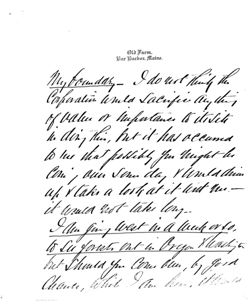 Old Farm.
Bar Harbor, Maine.
My boundary – I do not think the
Corporation would sacrifice anything
of value or importance to itself
in doing this, but it has occurred
to me that possibly you might be
coming over some day & would drive
up & take a look at it with me –
it would not take long –
I am going west in a week or so,
to see forests out in Oregon &
but should you come down, by good
chance, while I am here, I would